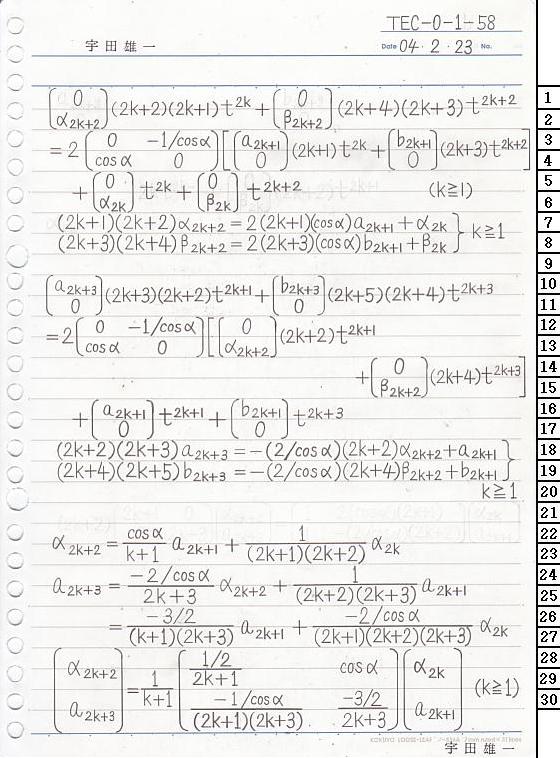 TEC-0-1-58
宇田雄一 Date 04・2・23 No.
(0 α_{2k+2})(2k+2)(2k+1)t^{2k} + (0 β_{2k+2})(2k+4)(2k+3)t^{2k+2}
= 2(0 -1/cosα cosα 0)[(a_{2k+1} 0)(2k+1)t^{2k} + (b_{2k+1} 0)(2k+3)t^{2k+2}]
+ (0 α_{2k}) t^{2k} + (0 β_{2k}) t^{2k+2} (k≧1)
(2k+1)(2k+2)α_{2k+2} = 2(2k+1)(cosα)a_{2k+1} + α_{2k}
(2k+3)(2k+4)β_{2k+2} = 2(2k+3)(cosα)b_{2k+1} + β_{2k} } k≧1
(a_{2k+3} 0)(2k+3)(2k+2)t^{2k+1} + (b_{2k+3} 0)(2k+5)(2k+4)t^{2k+3}
= 2(0 -1/cosα cosα 0)[(0 α_{2k+2})(2k+2)t^{2k+1}
+ (0 β_{2k+2})(2k+4)t^{2k+3}]
+ (a_{2k+1} 0)t^{2k+1} + (b_{2k+1} 0)t^{2k+3}
(2k+2)(2k+3)a_{2k+3} = -(2/cosα)(2k+2)α_{2k+2} + a_{2k+1}
(2k+4)(2k+5)b_{2k+3} = -(2/cosα)(2k+4)β_{2k+2} + b_{2k+1} }
k≧1
α_{2k+2} = cosα/(k+1) a_{2k+1} + 1/((2k+1)(2k+2)) α_{2k}
a_{2k+3} = (-2/cosα)/(2k+3) α_{2k+2} + 1/((2k+2)(2k+3)) a_{2k+1}
= (-3/2)/((k+1)(2k+3)) a_{2k+1} + (-2/cosα)/((2k+1)(2k+2)(2k+3)) α_{2k}
(α_{2k+2} a_{2k+3}) = 1/(k+1) ((1/2)/(2k+1) cosα (-1/cosα)/((2k+1)(2k+3)) (-3/2)/(2k+3)) (α_{2k} a_{2k+1}) (k≧1)
宇田雄一
1
2
3
4
5
6
7
8
9
10
11
12
13
14
15
16
17
18
19
20
21
22
23
24
25
26
27
28
29
30